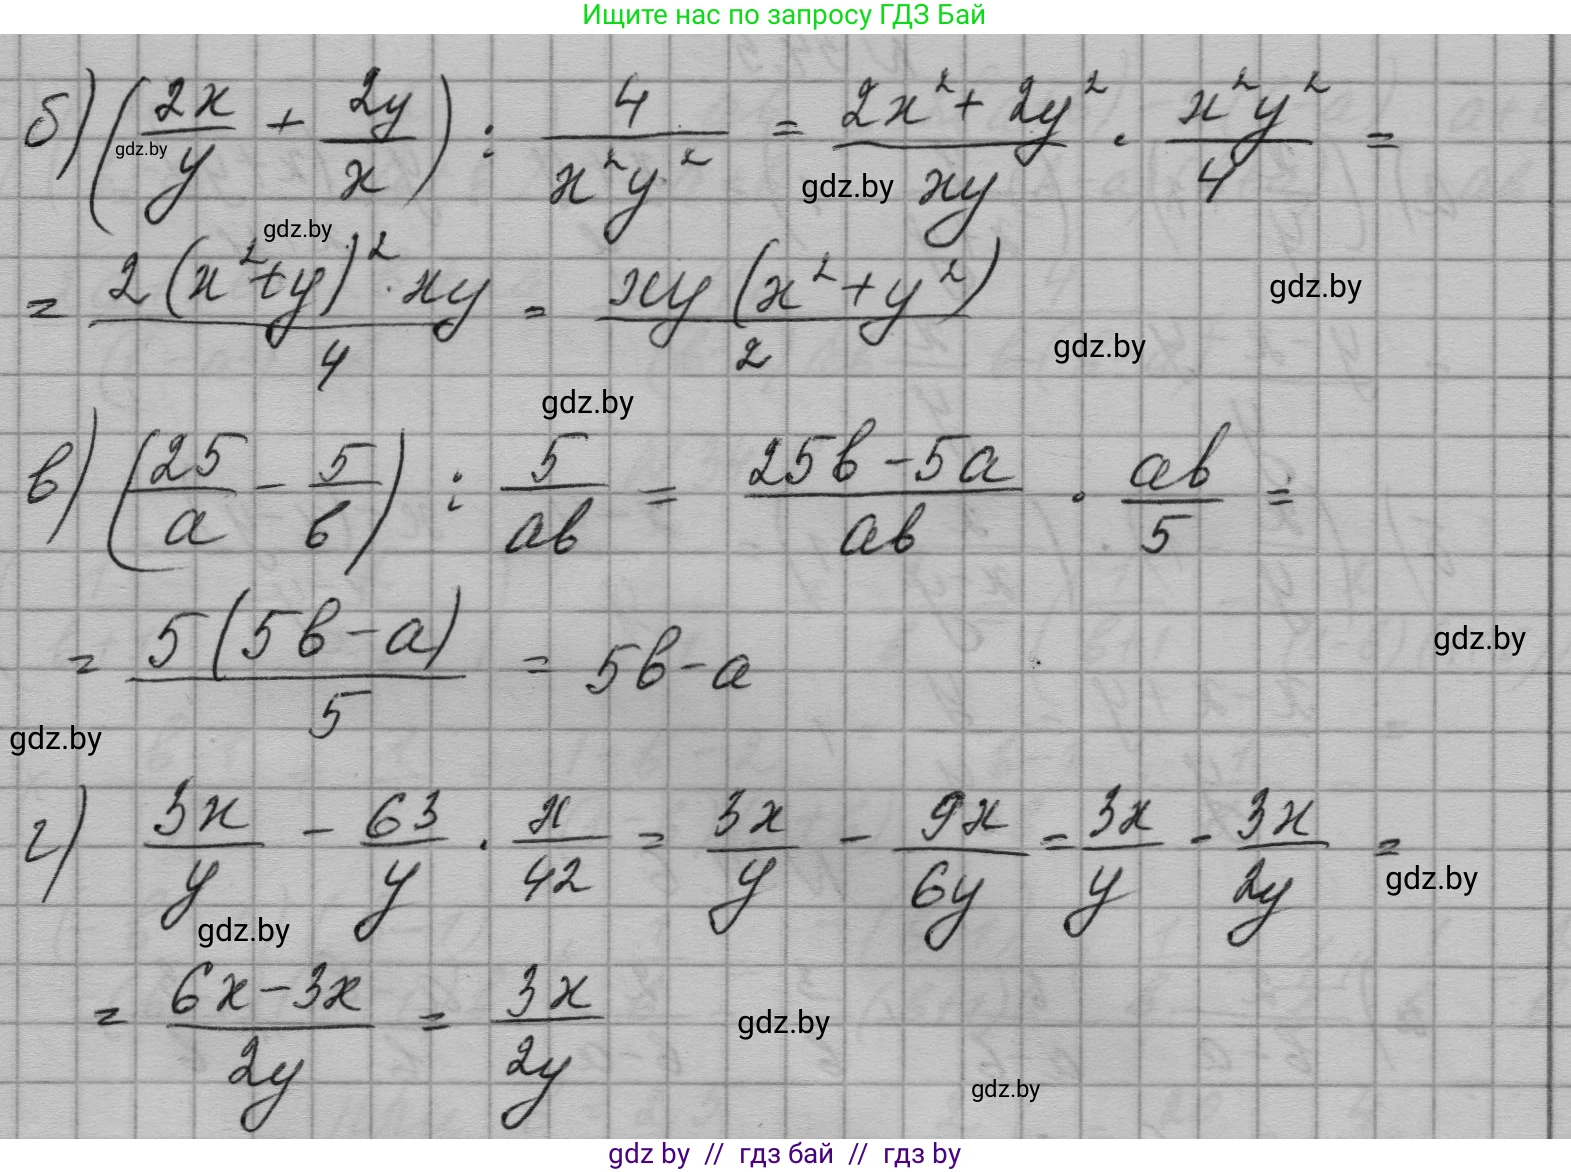 Ищите нас по запросу ГДЗ Бай
б) (2x/y + 2y/x) : 4/x²y² = 2x² + 2y²/xy · x²y²/4 =
= 2(x²+y)² · xy/4 = xy(x²+y²)/2
в) (25/a - 5/в) : 5/aв = 25в - 5a/aв · aв/5 =
= 5(5в - a)/5 = 5в - a
г) 3x/y - 63/y · x/42 = 3x/y - 9x/6y = 3x/y - 3x/2y =
= 6x - 3x/2y = 3x/2y
gdz.by
gdz.by
gdz.by
gdz.by
gdz.by
gdz.by
gdz.by
gdz.by
gdz.by
gdz.by
gdz.by
gdz.by
gdz by // гдз бай // гдз by